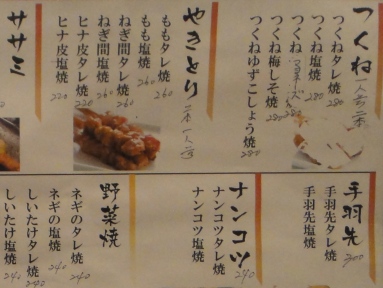 つくね 一人前二本
つくねタレ焼 280
つくね塩焼 280
つくね
つくね梅しそ焼 280
つくねゆずこしょう焼 280
やきとり 二本一人前
ももタレ焼 260
もも塩焼 260
ねぎ間タレ焼 260
ねぎ間塩焼 260
ヒナ皮タレ焼 220
ヒナ皮塩焼 220
ササミ
手羽先 300
手羽先タレ焼
手羽先塩焼
ナンコツ 240
ナンコツタレ焼
ナンコツ塩焼
野菜焼
ネギのタレ焼 240
ネギの塩焼 240
しいたけタレ焼 240
しいたけ塩焼 240